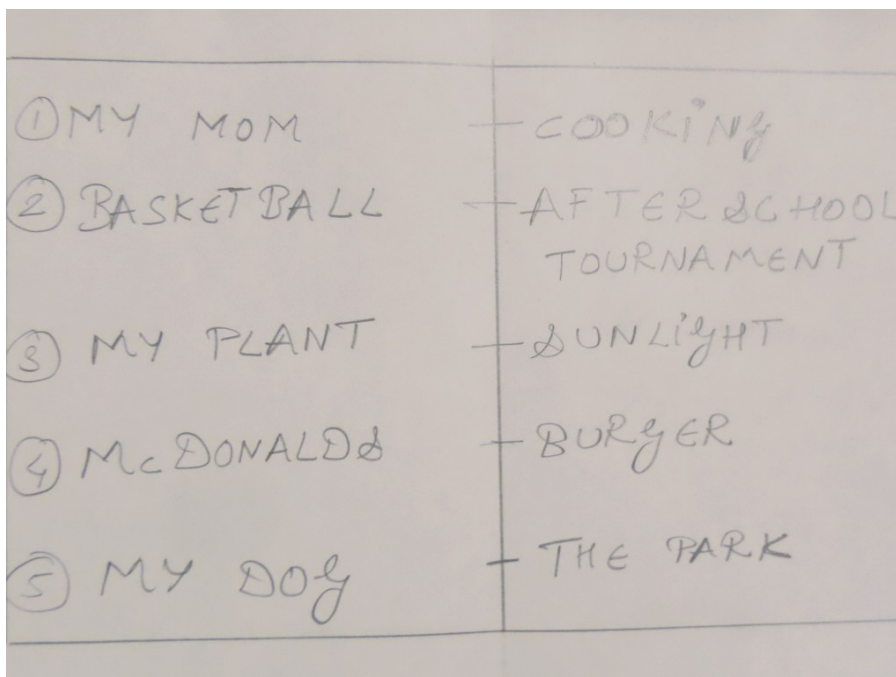 ① MY MOM - COOKING
② BASKETBALL - AFTER SCHOOL
TOURNAMENT
③ MY PLANT - SUNLIGHT
④ McDONALDS - BURGER
⑤ MY DOG - THE PARK